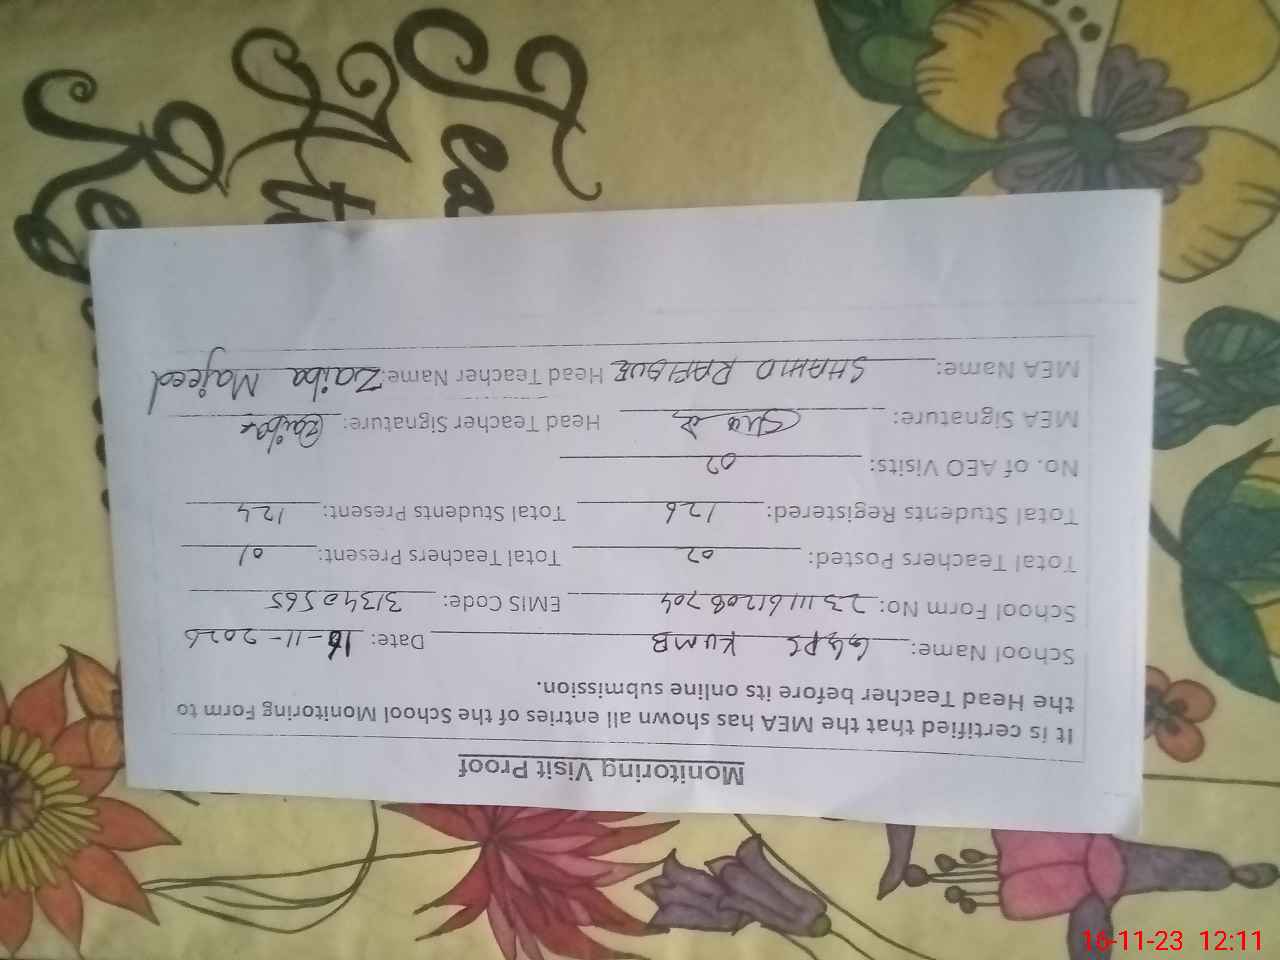 Monitoring Visit Proof
It is certified that the MEA has shown all entries of the School Monitoring Form to
the Head Teacher before its online submission.
School Name: GGPS KUMB Date: 16-11-2026
School Form No: 2311161208704 EMIS Code: 31340565
Total Teachers Posted: 02 Total Teachers Present: 01
Total Students Registered: 126 Total Students Present: 124
No. of AEO Visits: 02
MEA Signature: Head Teacher Signature: Zaiba
MEA Name: SHAHID RAFIQUE Head Teacher Name: Zaiba Majeed
Tea
Ati
Re
16-11-23 12:11